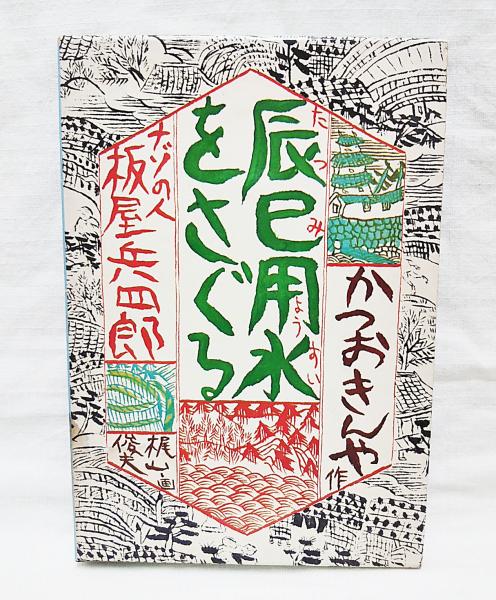 辰巳用水
たつみようすい
をさぐる
ナゾの人
板屋兵四郎
かつおきんや 作
梶山俊夫 画